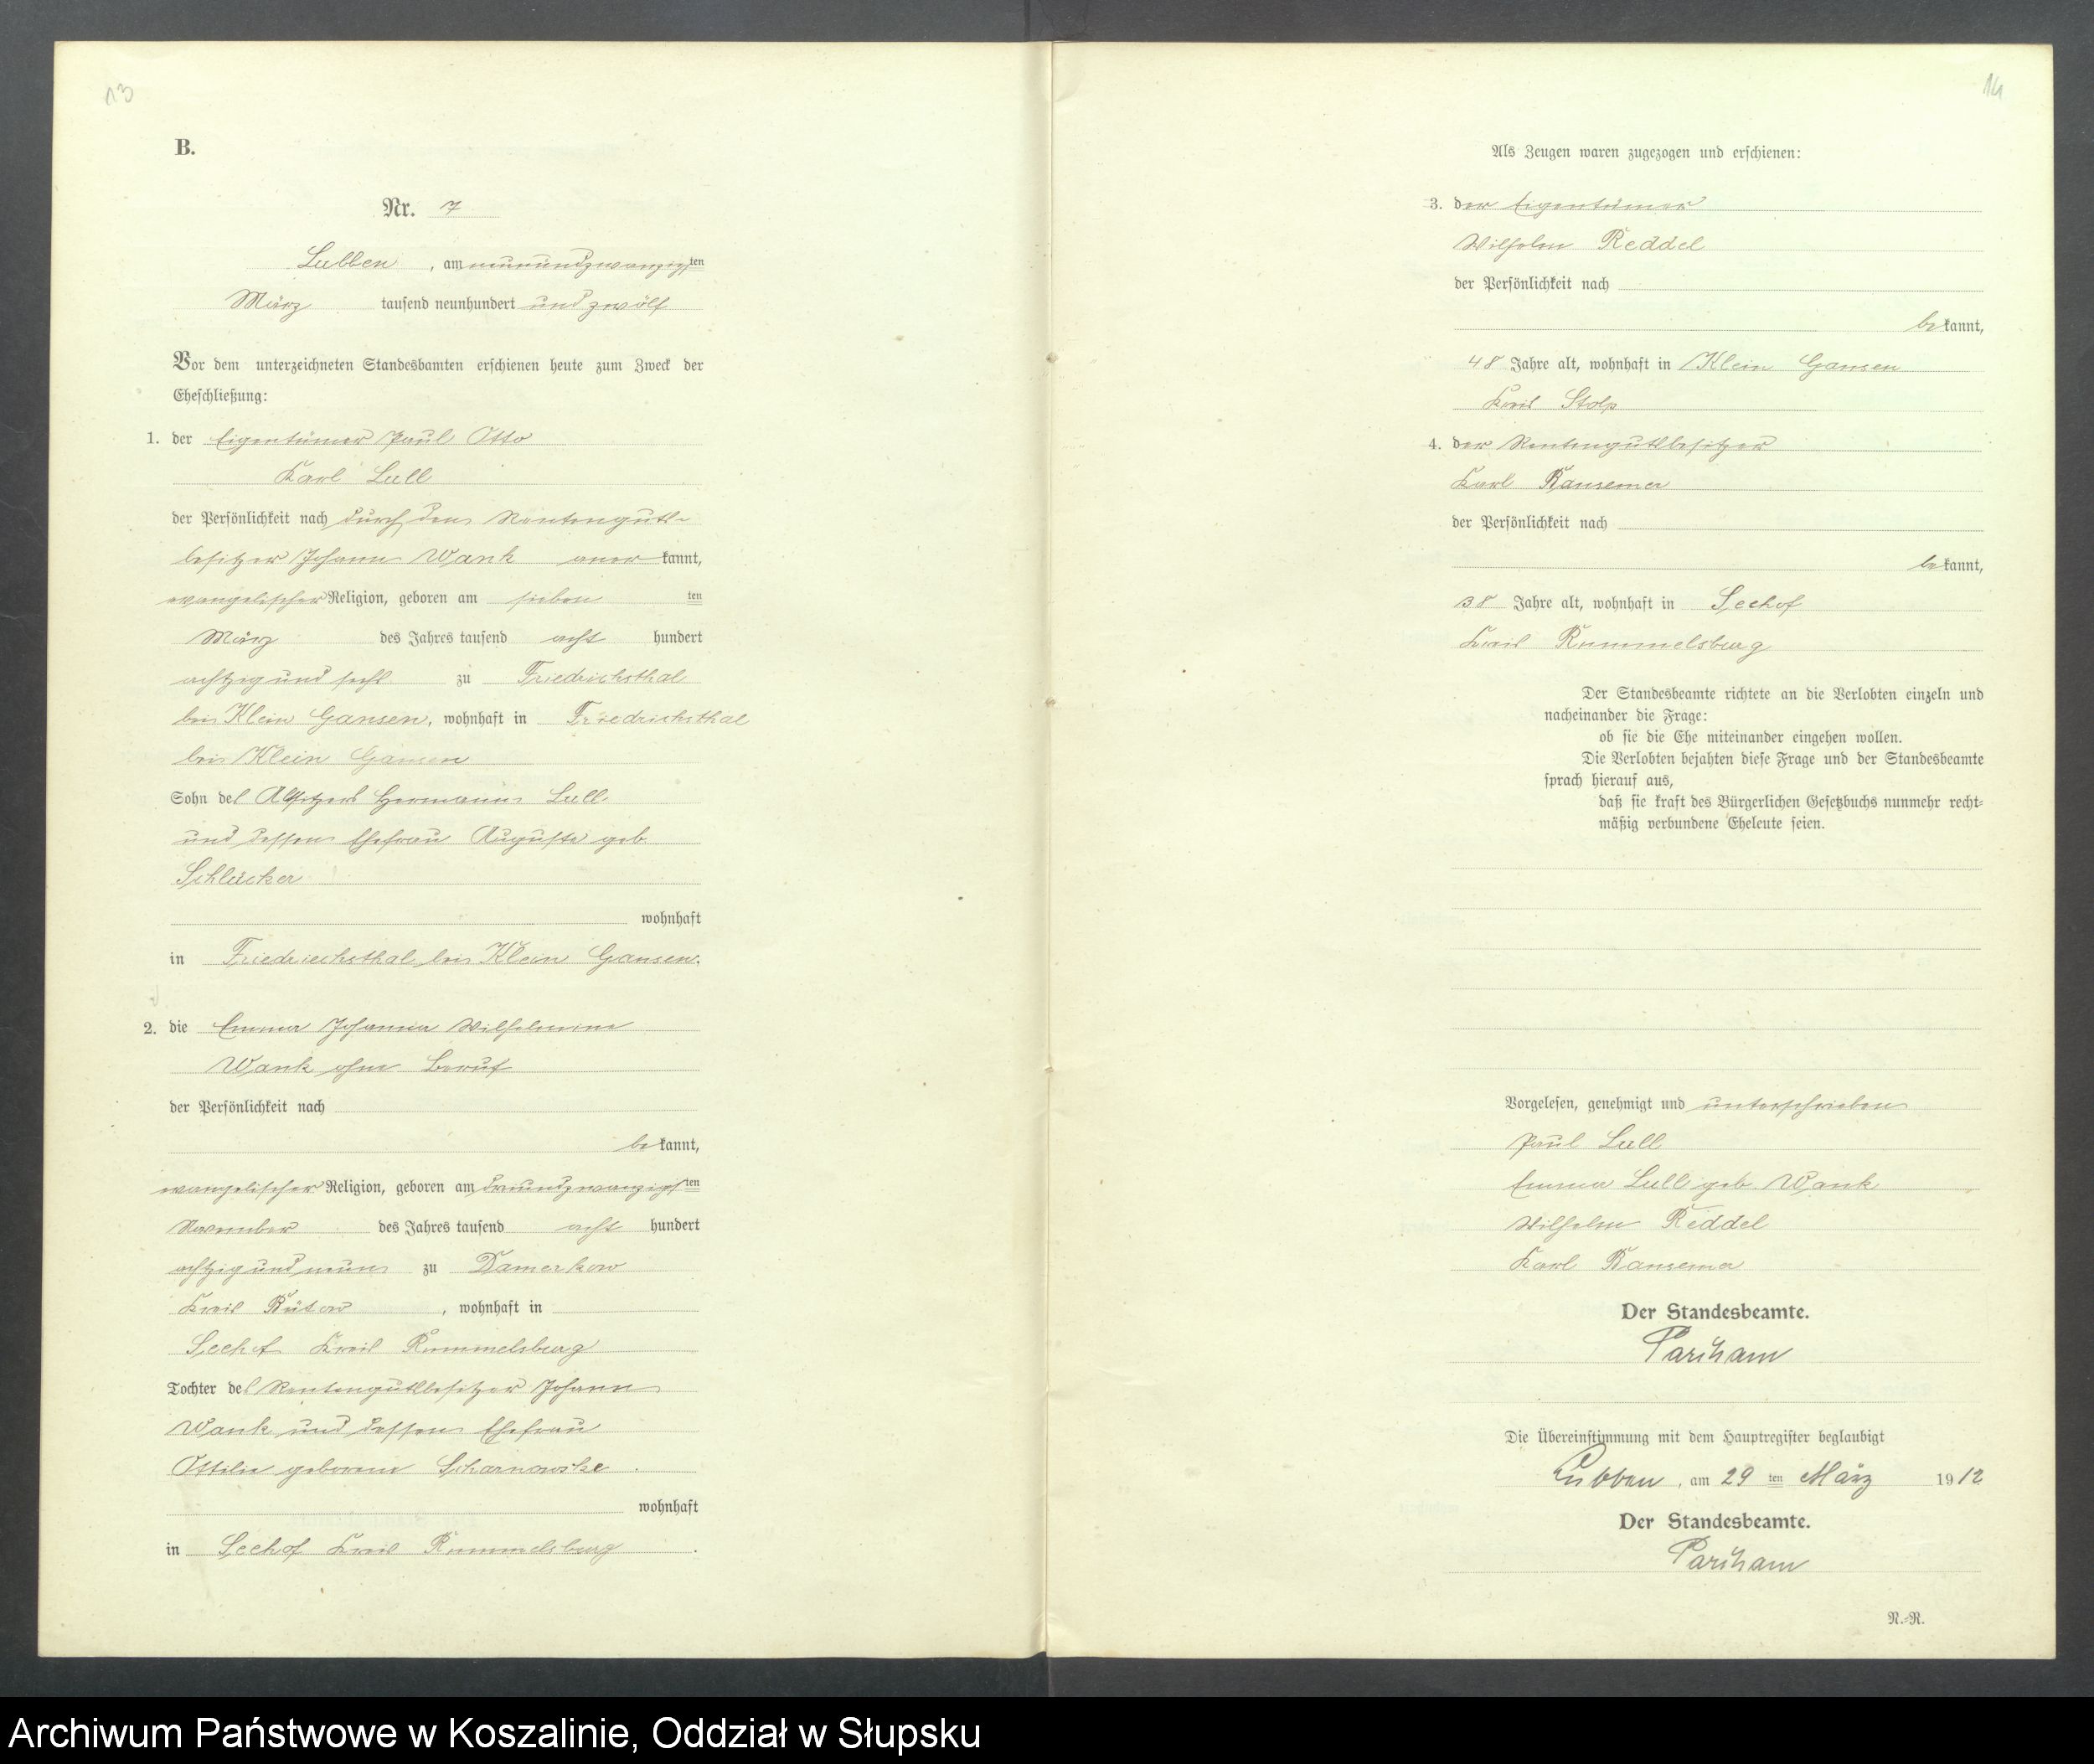 13
B.
Nr. 7
Lubben, am neunundzwanzigsten
März tausend neunhundert und zwölf
Vor dem unterzeichneten Standesbamten erschienen heute zum Zweck der
Eheschließung:
1. der Eigentümer Paul Otto
Karl Lull
der Persönlichkeit nach durch den Rentenguts-
besitzer Johann Wank anerkannt,
evangelischer Religion, geboren am sieben ten
März des Jahres tausend acht hundert
achtzig und sechs zu Friedrichsthal
bei Klein Gansen, wohnhaft in Friedrichsthal
bei Klein Gansen
Sohn des Altsitzers Hermann Lull
und dessen Ehefrau Auguste geb
Schlücker
wohnhaft
in Friedriechsthal bei Klein Gansen.
2. die Emma Johanna Wilhelmine
Wank ohne Beruf
der Persönlichkeit nach
bekannt,
evangelischer Religion, geboren am dreiundzwanzigsten
November des Jahres tausend acht hundert
achtzig und neun zu Damerkow
Kreis Bütow, wohnhaft in
Seehof Kreis Rummelsburg
Tochter des Rentengutsbesitzer Johann
Wank und dessen Ehefrau
Ottilie geborene Scharnowske.
wohnhaft
in Seehof Kreis Rummelsburg.
14
Als Zeugen waren zugezogen und erschienen:
3. der Eigentümer
Wilhelm Reddel
der Persönlichkeit nach
bekannt,
48 Jahre alt, wohnhaft in Klein Gansen
Kreis Stolp
4. der Rentengutsbesitzer
Karl Ransemer
der Persönlichkeit nach
bekannt,
38 Jahre alt, wohnhaft in Seehof
Kreis Rummelsburg
Der Standesbeamte richtete an die Verlobten einzeln und
nacheinander die Frage:
ob sie die Ehe miteinander eingehen wollen.
Die Verlobten bejahten diese Frage und der Standesbeamte
sprach hierauf aus,
daß sie kraft des Bürgerlichen Gesetzbuchs nunmehr recht-
mäßig verbundene Eheleute seien.
Vorgelesen, genehmigt und unterschrieben
Paul Lull
Emma Lull geb. Wank
Wilhelm Reddel
Karl
Der Standesbeamte.
Die Übereinstimmung mit dem Hauptregister beglaubigt
Lubben, am 29 ten März 1912
Der Standesbeamte.
N.-R.
Archiwum Państwowe w Koszalinie, Oddział w Słupsku